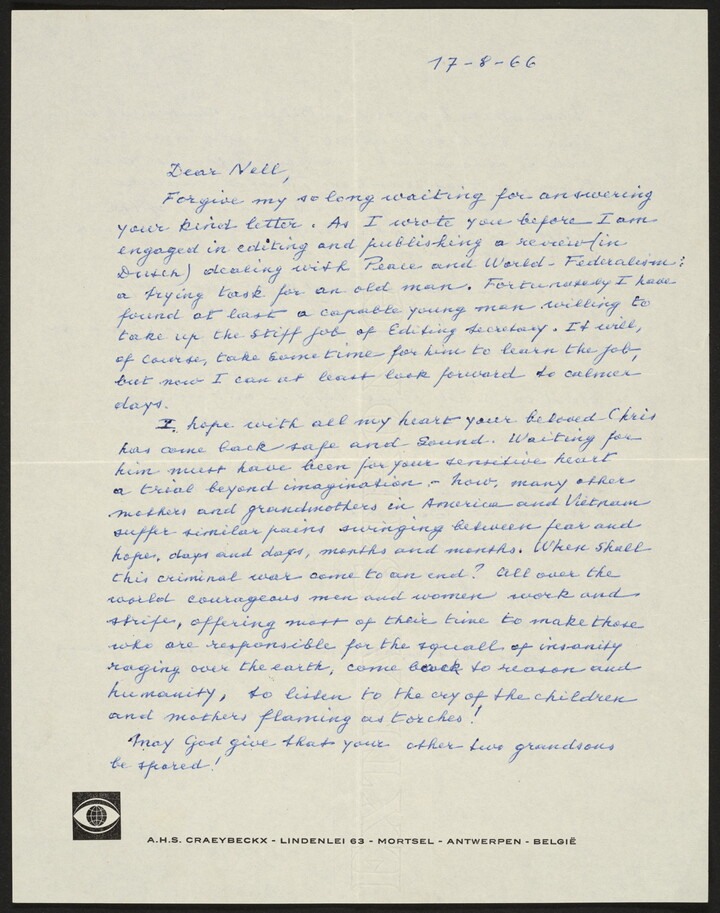 17-8-66
Dear Nell,
Forgive my so long waiting for answering
your kind letter. As I wrote you before I am
engaged in editing and publishing a review (in
Dutch) dealing with Peace and World-Federalism:
a trying task for an old man. Fortunately I have
found at last a capable young man willing to
take up the stiff job of Editing secretary. It will,
of course, take some time for him to learn the job,
but now I can at least look forward to calmer
days.
I hope with all my heart your beloved Chris
has come back safe and Sound. Waiting for
him must have been for your sensitive heart
a trial beyond imagination. - how many other
mothers and grandmothers in America and Vietnam
suffer similar pains swinging between fear and
hope, days and days, months and months. When shall
this criminal war come to an end? All over the
world courageous men and women work and
strife, offering most of their time to make those
who are responsible for the squall of insanity
raging over the earth, come back to reason and
humanity, to listen to the cry of the children
and mothers flaming as torches!
May God give that your other two grandsons
be spared!
A.H.S. CRAEYBECKX - LINDENLEI 63 - MORTSEL - ANTWERPEN - BELGIË